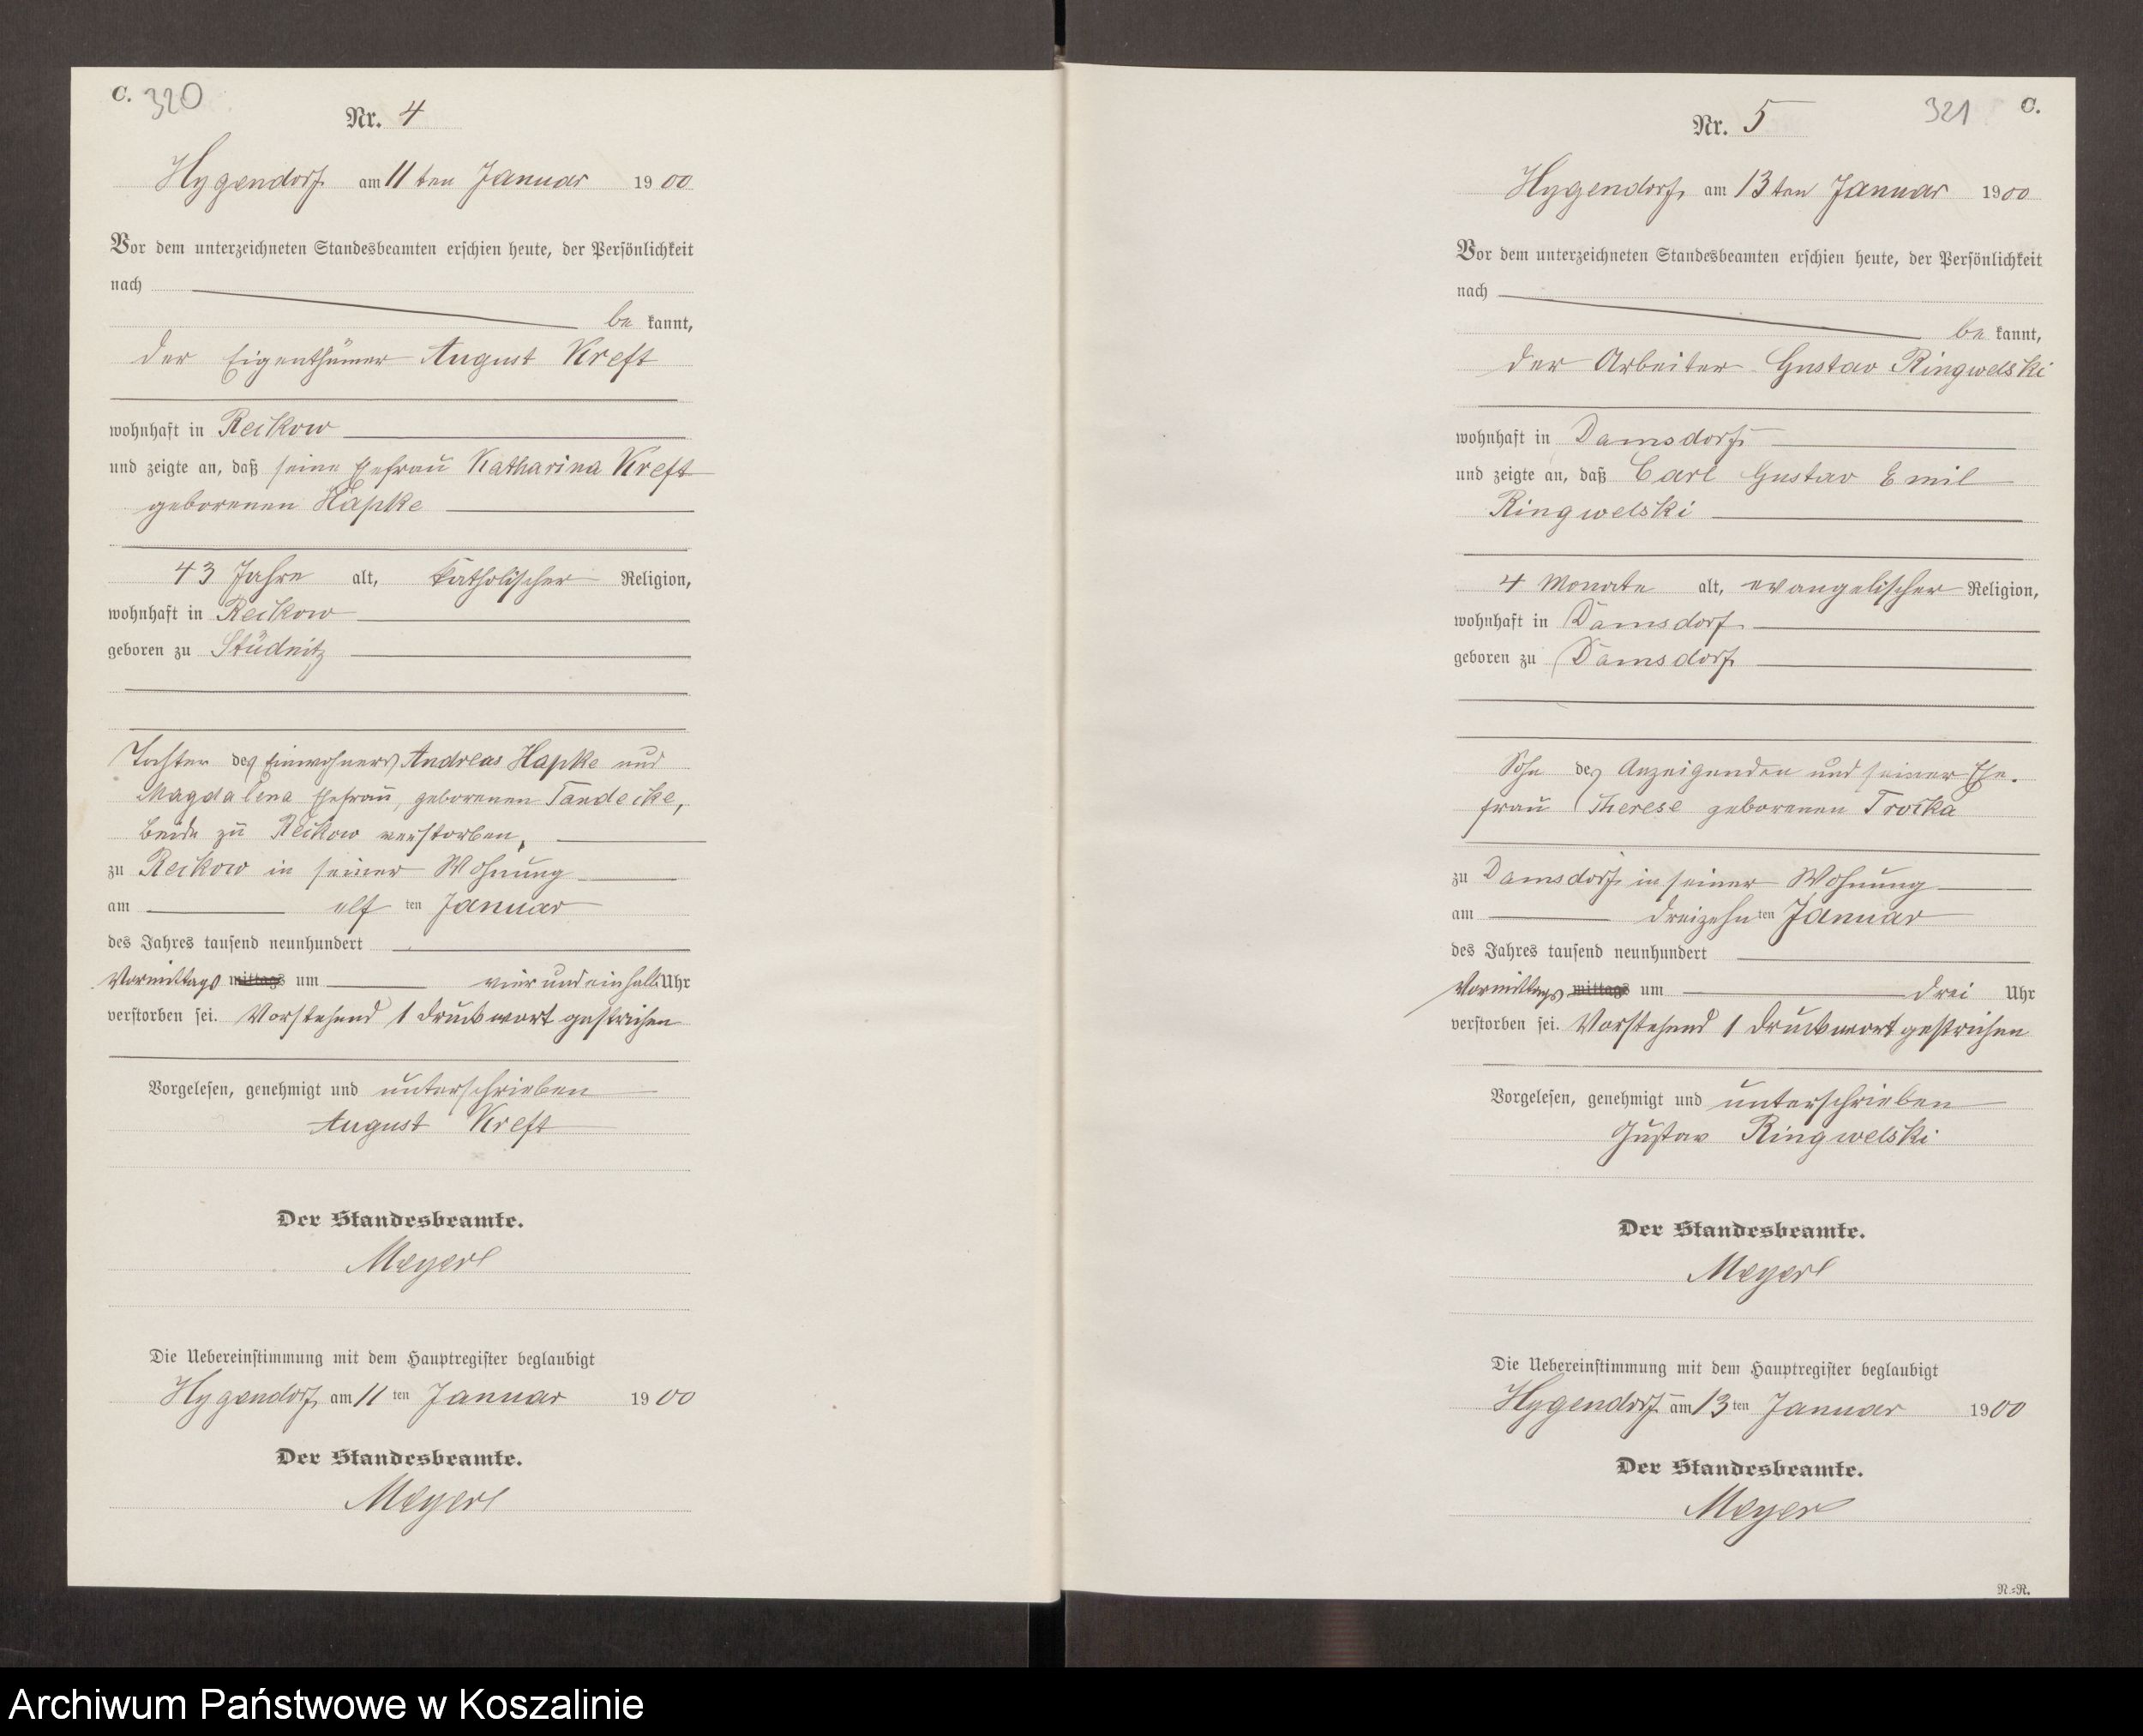 C. 320
Nr. 4
Hygendorf am 11ten Januar 1900
Vor dem unterzeichneten Standesbeamten erschien heute, der Persönlichkeit
nach
be kannt,
der Eigenthümer August Kreft
wohnhaft in Reckow
und zeigte an, daß seine Ehefrau Katharina Kreft
geborenen Hapke
43 Jahre alt, katholischer Religion,
wohnhaft in Reckow
geboren zu Stüdnitz
Tochter des Einwohners Andreas Hapke und
Magdalena Ehefrau, geborenen Tandecke,
beide zu Reckow verstorben,
zu Reckow in seiner Wohnung
am elf ten Januar
des Jahres tausend neunhundert
Vormittags mittags um vier und ein halb Uhr
verstorben sei. Vorstehend 1 Druckwort gestrichen
Vorgelesen, genehmigt und unterschrieben
August Kreft
Der Standesbeamte.
Meyer
Die Uebereinstimmung mit dem Hauptregister beglaubigt
Hygendorf, am 11 ten Januar 1900
Der Standesbeamte.
Meyer
321 C.
Nr. 5
Hygendorf, am 13ten Januar 1900
Vor dem unterzeichneten Standesbeamten erschien heute, der Persönlichkeit
nach
be kannt,
der Arbeiter Gustav Ringwelski
wohnhaft in Damsdorf
und zeigte an, daß Carl Gustav Emil
Ringwelski
4 Monate alt, evangelischer Religion,
wohnhaft in Damsdorf
geboren zu Damsdorf
Sohn des Anzeigenden und seiner Ehe-
frau Therese geborenen Troika
zu Damsdorf in seiner Wohnung
am dreizehn ten Januar
des Jahres tausend neunhundert
Vormittags mittags um drei Uhr
verstorben sei. Vorstehend 1 Druckwort gestrichen
Vorgelesen, genehmigt und unterschrieben
Gustav Ringwelski
Der Standesbeamte.
Meyer
Die Uebereinstimmung mit dem Hauptregister beglaubigt
Hygendorf am 13 ten Januar 1900
Der Standesbeamte.
Meyer
N.=R.
Archiwum Państwowe w Koszalinie